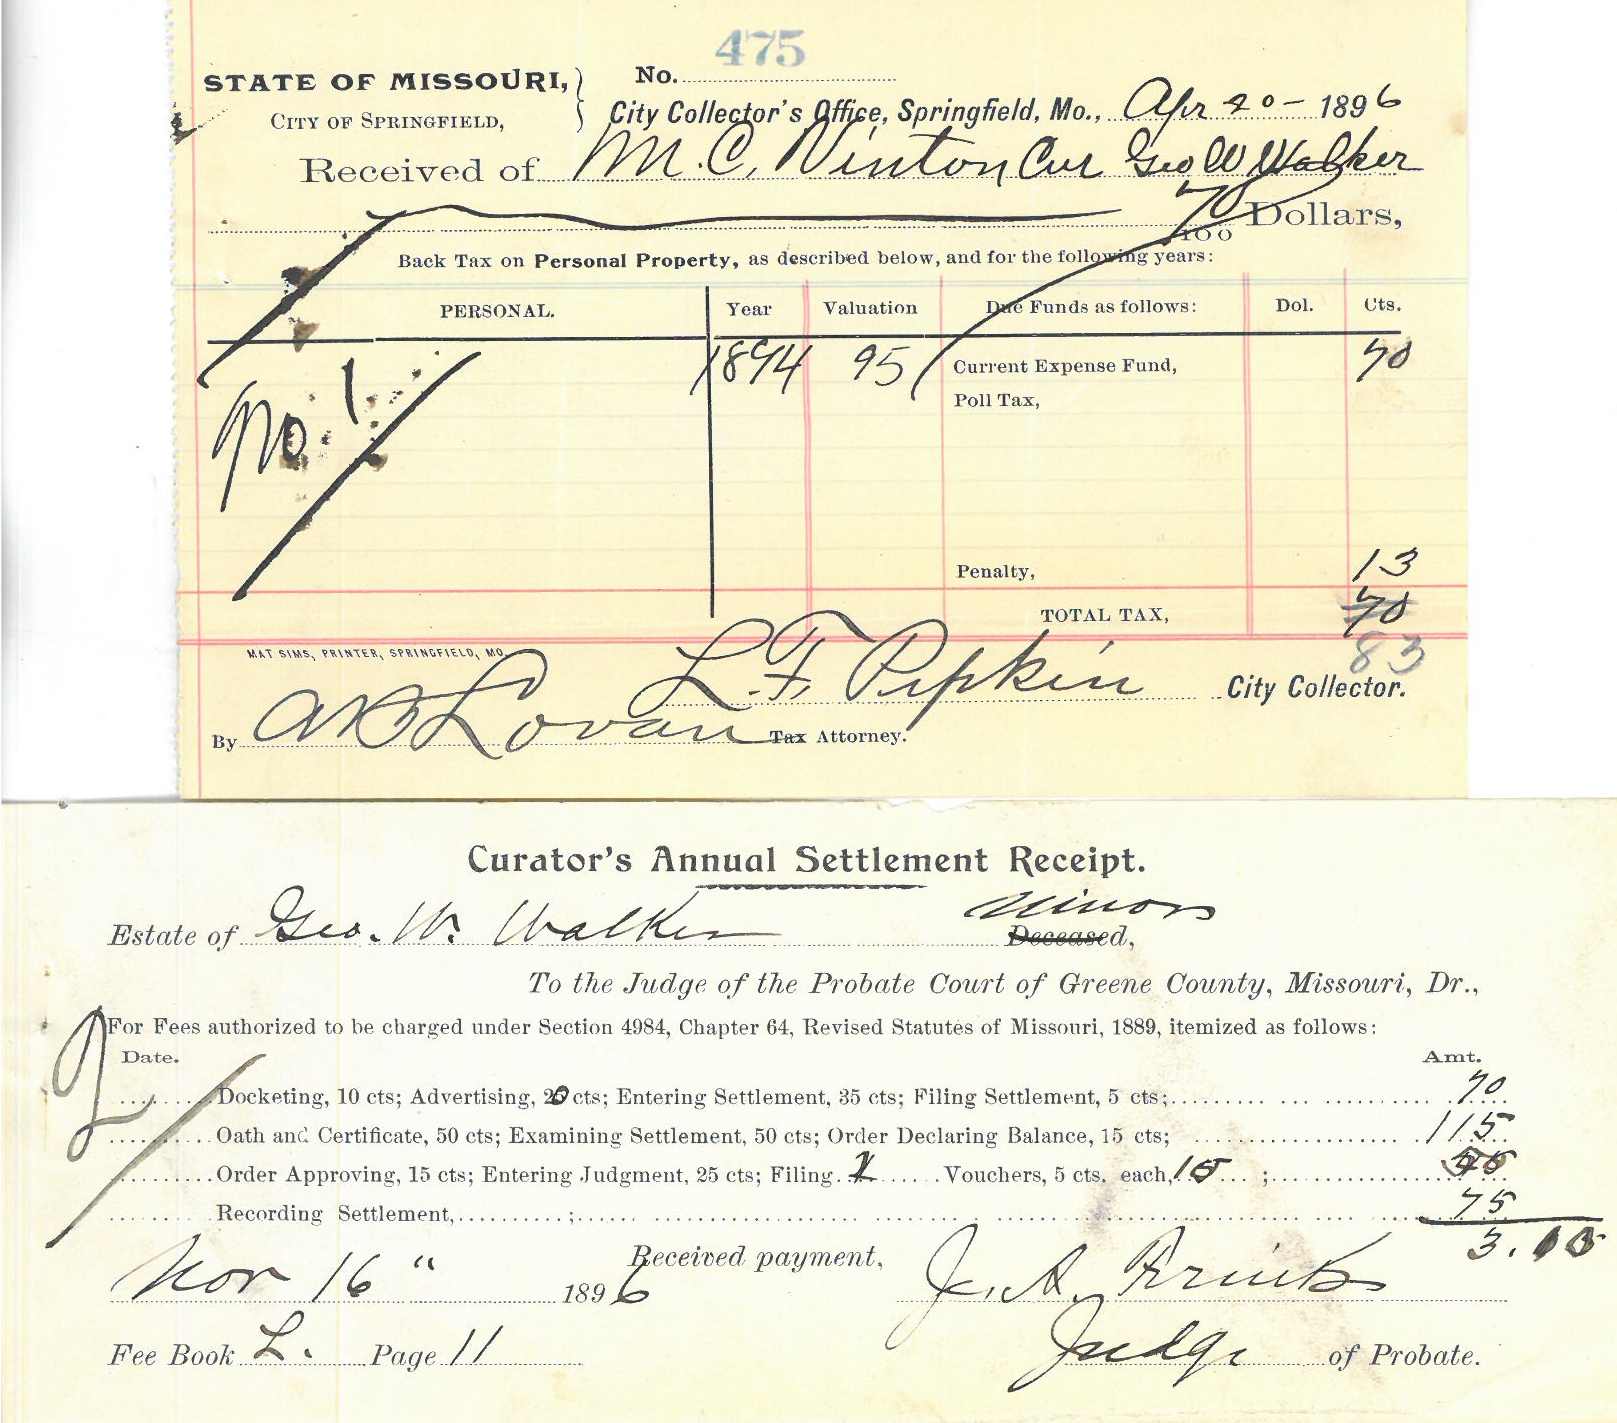 475
STATE OF MISSOURI, No.
CITY OF SPRINGFIELD, City Collector's Office, Springfield, Mo., Apr 20 - 1896
Received of M. C. Vinton Cur Geo W Walker
70/100 Dollars,
Back Tax on Personal Property, as described below, and for the following years:
PERSONAL. Year Valuation Due Funds as follows: Dol. Cts.
1894 95 Current Expense Fund, 70
Poll Tax,
No. 1
Penalty, 13
TOTAL TAX, 70
83
MAT SIMS, PRINTER, SPRINGFIELD, MO.
L. F. Pipkin City Collector.
By Lovan Tax Attorney.
Curator's Annual Settlement Receipt.
Estate of Geo. W. Walker Minor Deceased,
To the Judge of the Probate Court of Greene County, Missouri, Dr.,
For Fees authorized to be charged under Section 4984, Chapter 64, Revised Statutes of Missouri, 1889, itemized as follows:
2
Date. Amt.
Docketing, 10 cts; Advertising, 20 cts; Entering Settlement, 35 cts; Filing Settlement, 5 cts; 70
Oath and Certificate, 50 cts; Examining Settlement, 50 cts; Order Declaring Balance, 15 cts; 115
Order Approving, 15 cts; Entering Judgment, 25 cts; Filing Vouchers, 5 cts. each, 15 ;
Recording Settlement, ; 75
3.
Nov 16 " 1896 Received payment, J. A.
Fee Book L. Page 11 Judge of Probate.